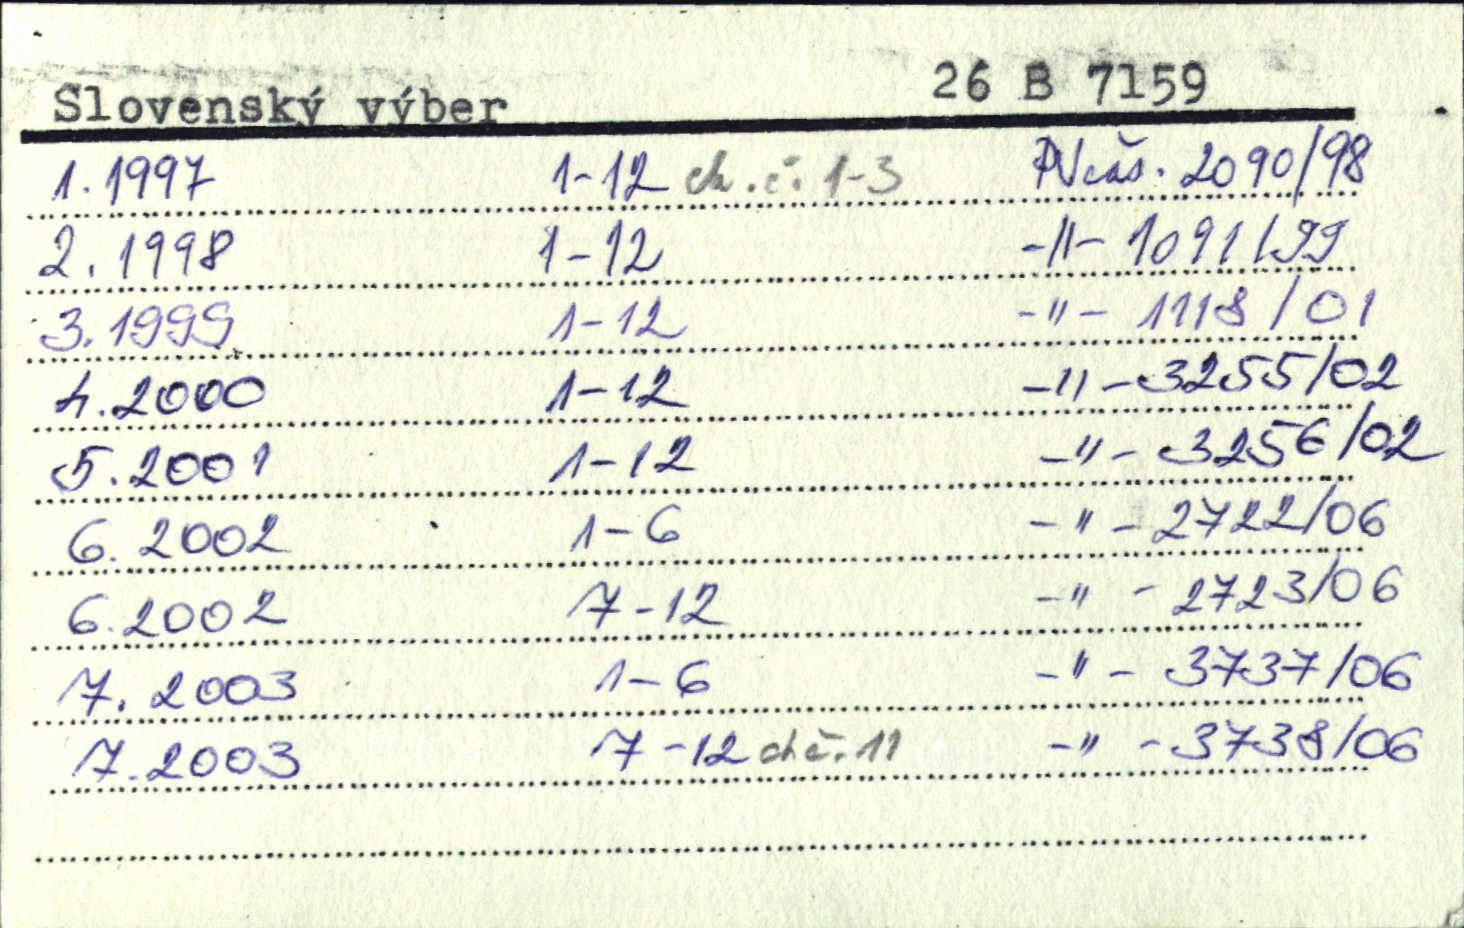 Slovenský výber 26 B 7159
1. 1997 1-12 ch. č. 1-3 PVčás. 2090/98
2. 1998 1-12 -"- 1091/99
3. 1999 1-12 -"- 1118/01
4. 2000 1-12 -"- 3255/02
5. 2001 1-12 -"- 3256/02
6. 2002 1-6 -"- 2722/06
6. 2002 7-12 -"- 2723/06
7. 2003 1-6 -"- 3737/06
7. 2003 7-12 ch č. 11 -"- 3738/06